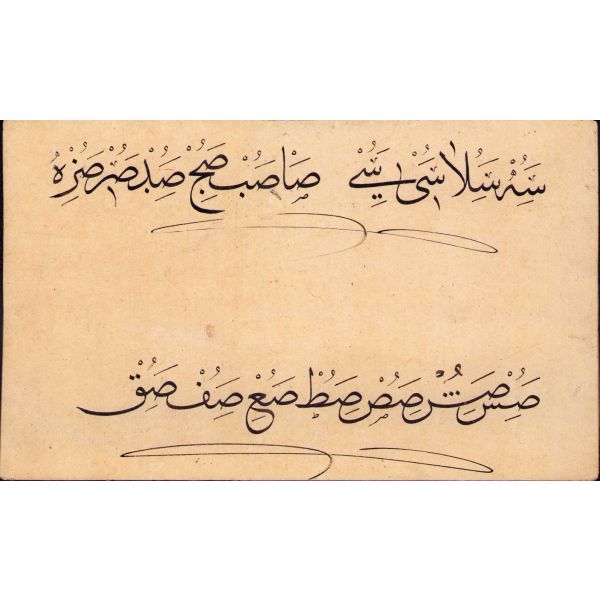 سه سلا سى سے صا صب صج صد صر صزه
صس صش صص صط صع صف صق